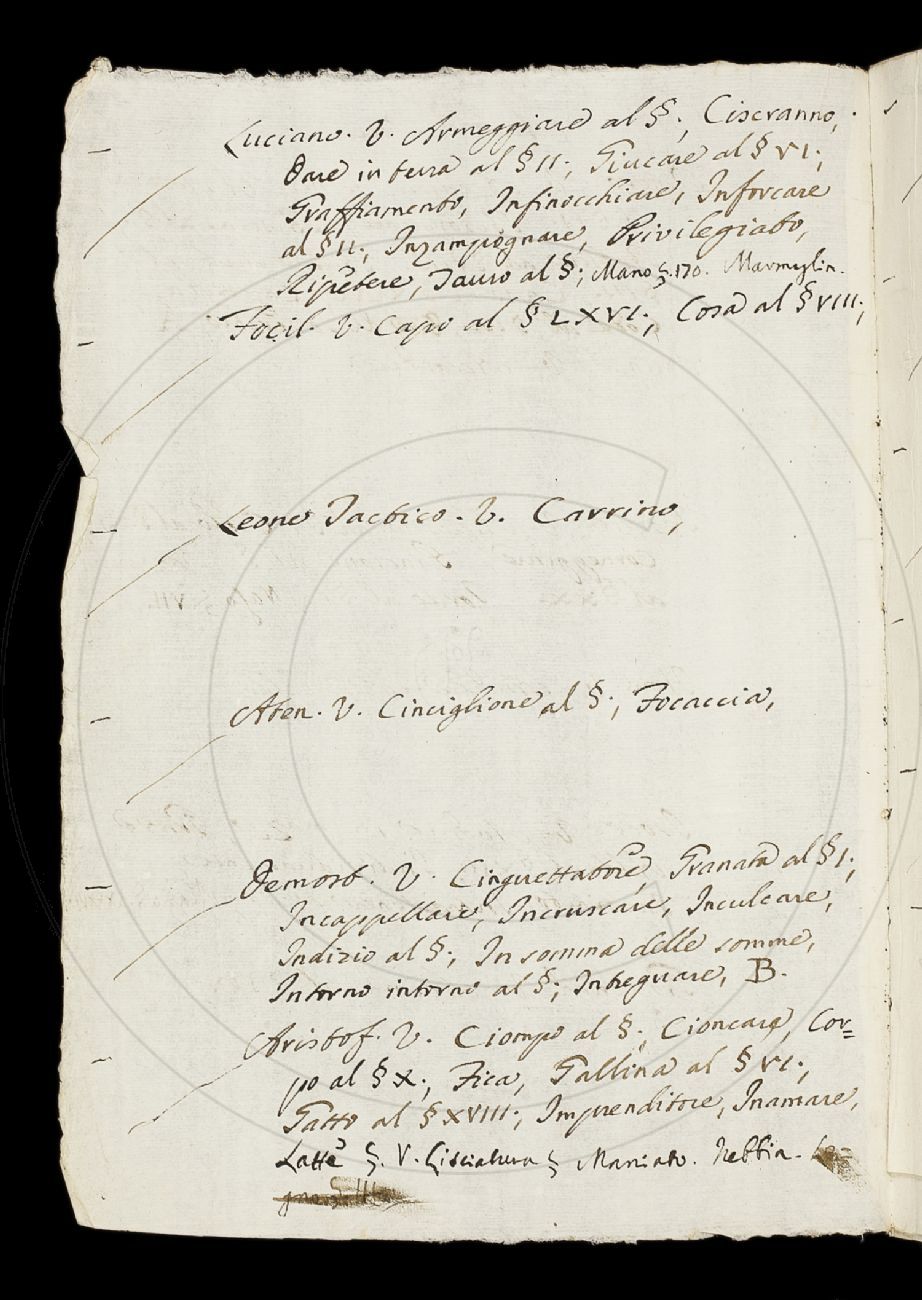 Luciano. V. Armeggiare al §; Ciscranno,
Dare in terra al § II; Giucare al § VI;
Graffiamento, Infinocchiare, Inforcare
al § II; Inzampognare, Privilegiato,
Ripetere, Tauro al §; Mano §. 170.
Focil. V. Capo al § LXVI; Cosa al § VIII;
Leone Tactico. V. Carrino,
Aten. V. Cinciglione al §; Focaccia,
Demost. V. Cinguettatore, Granata al § I;
Incappellare, Incruscare, Inculcare,
Indizio al §; In somma delle somme,
Intorno intorno al §; Intreguare, B.
Aristof. V. Ciompo al §; Cioncare, Cor=
po al § X; Fica, Gallina al § VI;
Gatto al § XVIII; Imprenditore, Inamare,
Latte §. V. Lisciatura § Maniato. Nebbia.